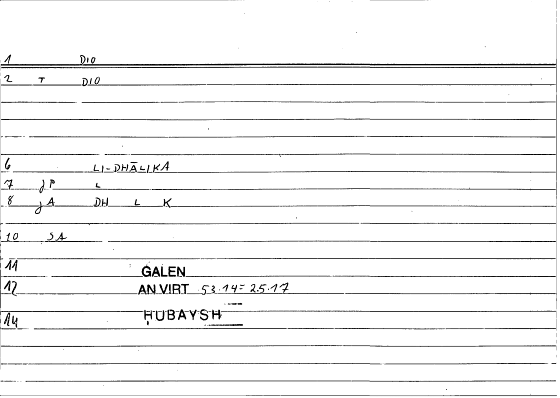 1 DIO
2 T DIO
6 LI-DHĀLIKA
7 JP L
8 JA DH L K
10 SA
11 GALEN
12 AN VIRT 53.14 = 25.17
14 ḤUBAYSH